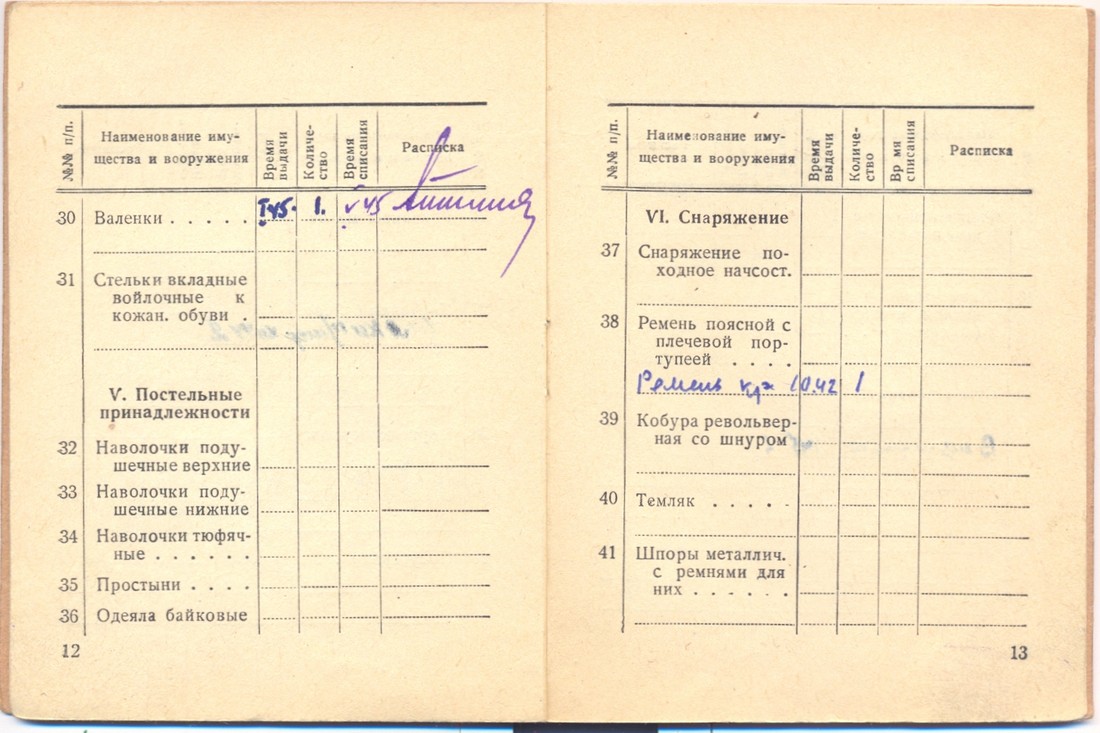 №№ п/п.
Наименование иму-
щества и вооружения
Время
выдачи
Количе-
ство
Время
списания
Расписка
30 Валенки . . . . . I 45. 1. V 45
31 Стельки вкладные
войлочные к
кожан. обуви .
V. Постельные
принадлежности
32 Наволочки поду-
шечные верхние
33 Наволочки поду-
шечные нижние
34 Наволочки тюфяч-
ные . . . . . .
35 Простыни . . . .
36 Одеяла байковые
12
№№ п/п.
Наименование иму-
щества и вооружения
Время
выдачи
Количе-
ство
Вр мя
списания
Расписка
VI. Снаряжение
37 Снаряжение по-
ходное начсост.
38 Ремень поясной с
плечевой пор-
тупеей . . . .
Ремень 10.42 1
39 Кобура револьвер-
ная со шнуром
40 Темляк . . . . .
41 Шпоры металлич.
с ремнями для
них . . . . . .
13